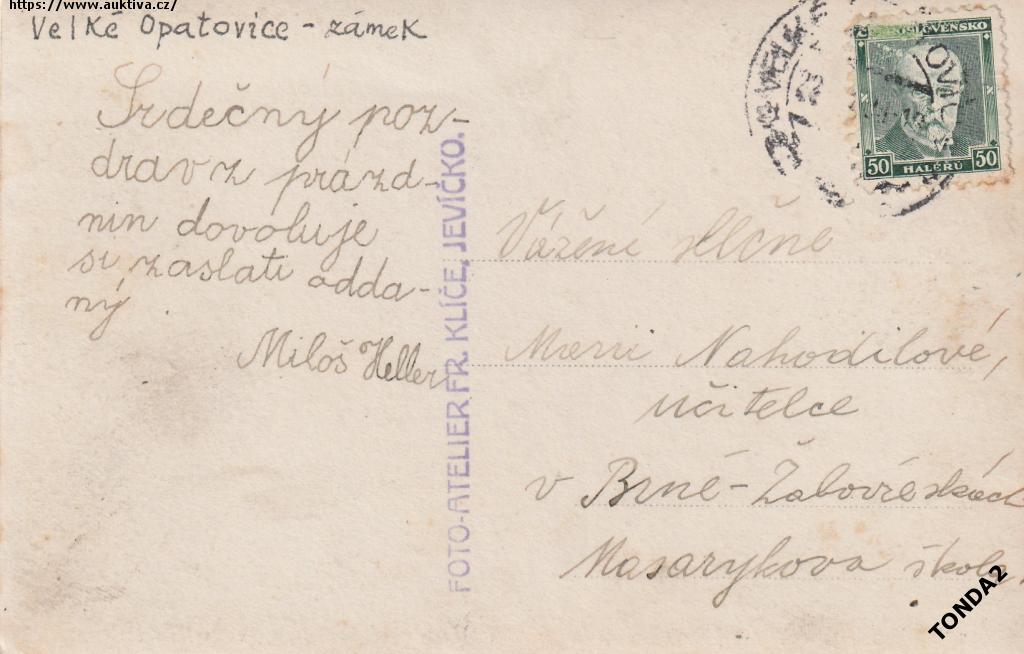 https://www.auktiva.cz/
Velké Opatovice - zámek
Srdečný poz-
drav z prázd-
nin dovoluje
si zaslati odda-
ný
Miloš Heller
FOTO-ATELIER FR. KLÍČE, JEVÍČKO.
50 HALÉŘŮ 50
Vážené slečně
Marii Nahodilové,
učitelce
v Brně-Žabovřeskách
Masarykova škola.
TONDA2